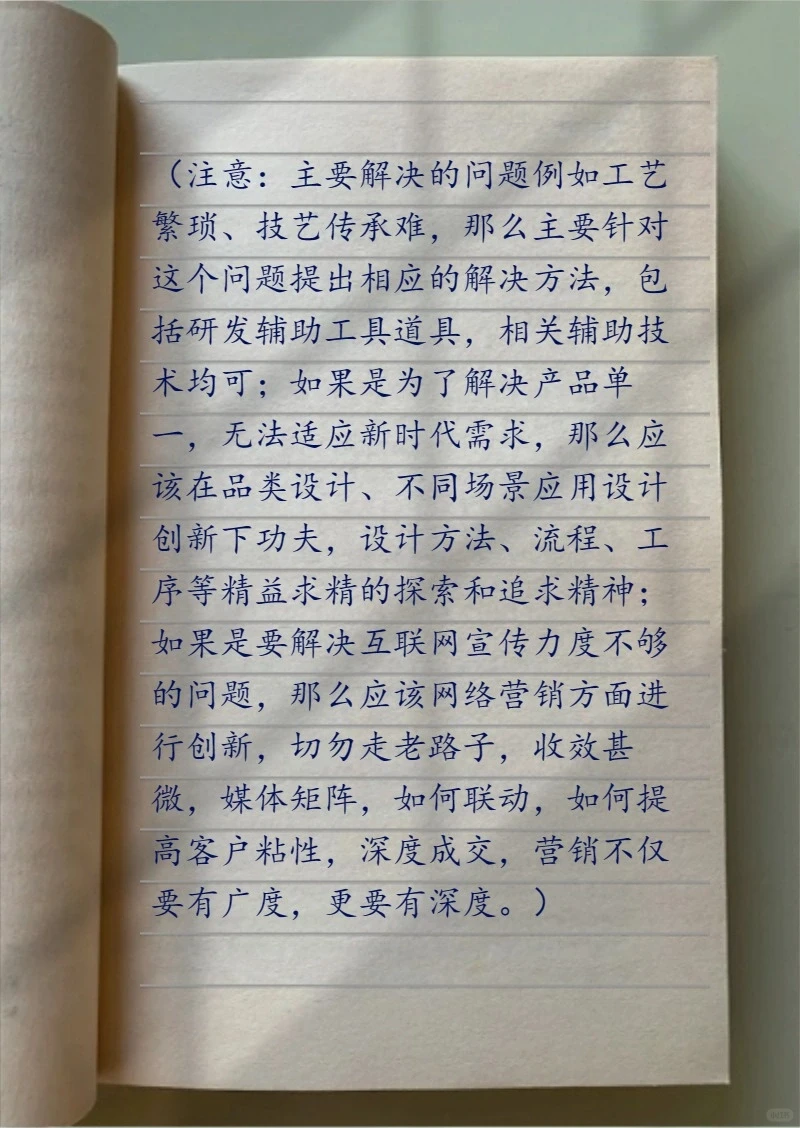 （注意：主要解决的问题例如工艺
繁琐、技艺传承难，那么主要针对
这个问题提出相应的解决方法，包
括研发辅助工具道具，相关辅助技
术均可；如果是为了解决产品单
一，无法适应新时代需求，那么应
该在品类设计、不同场景应用设计
创新下功夫，设计方法、流程、工
序等精益求精的探索和追求精神；
如果是要解决互联网宣传力度不够
的问题，那么应该网络营销方面进
行创新，切勿走老路子，收效甚
微，媒体矩阵，如何联动，如何提
高客户粘性，深度成交，营销不仅
要有广度，更要有深度。）